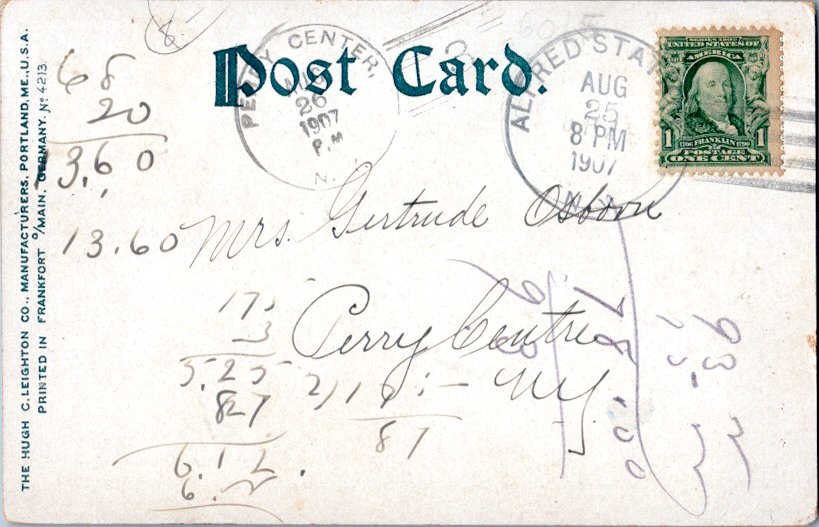 Post Card.
PERRY CENTER,
AUG
26
1907
P.M
N.Y.
ALFRED STATION
AUG
25
8 PM
1907
N.Y.
SERIES 1902
UNITED STATES OF
AMERICA
1 1706 FRANKLIN 1790 1
POSTAGE
ONE CENT
Mrs. Gertrude Osborn
Perry Centre
N.Y.
68
20
3,60
13.60
175
3
5.25
87
6.12
87
THE HUGH C. LEIGHTON CO., MANUFACTURERS, PORTLAND, ME., U.S.A.
PRINTED IN FRANKFORT o/MAIN, GERMANY. No 4213.